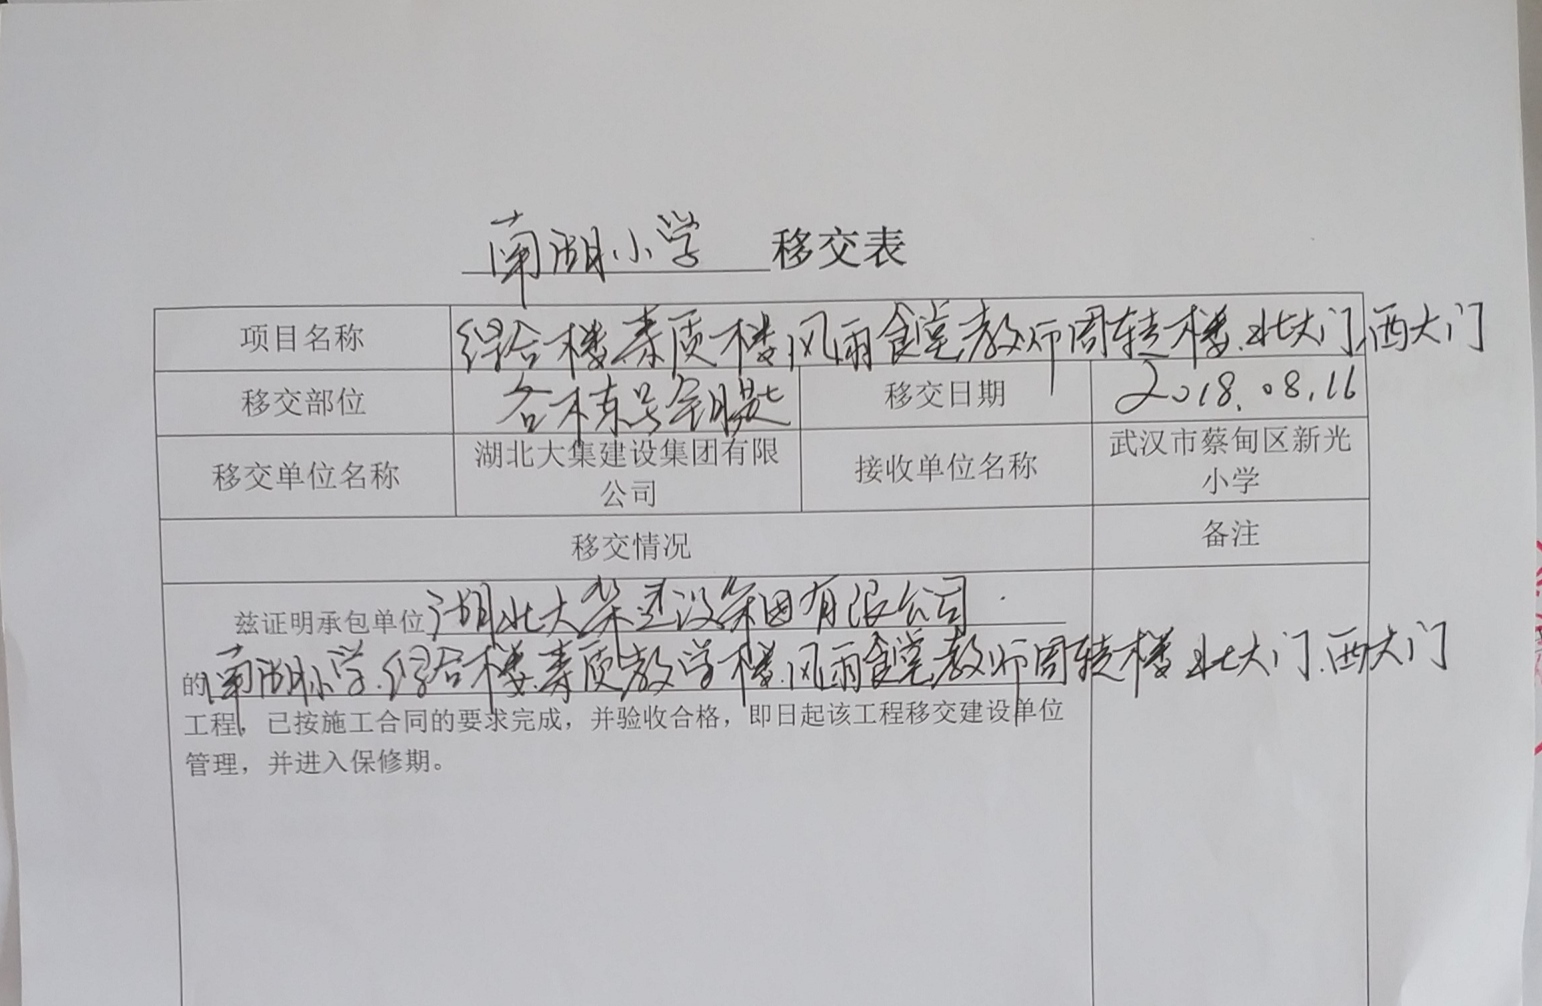 南湖小学 移交表
项目名称 综合楼.素质楼.风雨食堂.教师周转楼.北大门.西大门
移交部位 各栋号钥匙 移交日期 2018.08.16
移交单位名称 湖北大集建设集团有限 接收单位名称 武汉市蔡甸区新光
公司 小学
移交情况 备注
兹证明承包单位 湖北大集建设集团有限公司
的南湖小学.综合楼.素质教学楼.风雨食堂.教师周转楼.北大门.西大门
工程，已按施工合同的要求完成，并验收合格，即日起该工程移交建设单位
管理，并进入保修期。